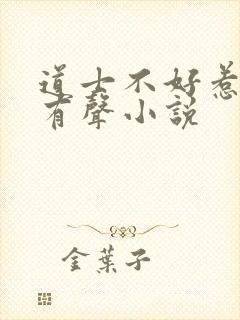 道士不好惹
有聲小說
金葉子